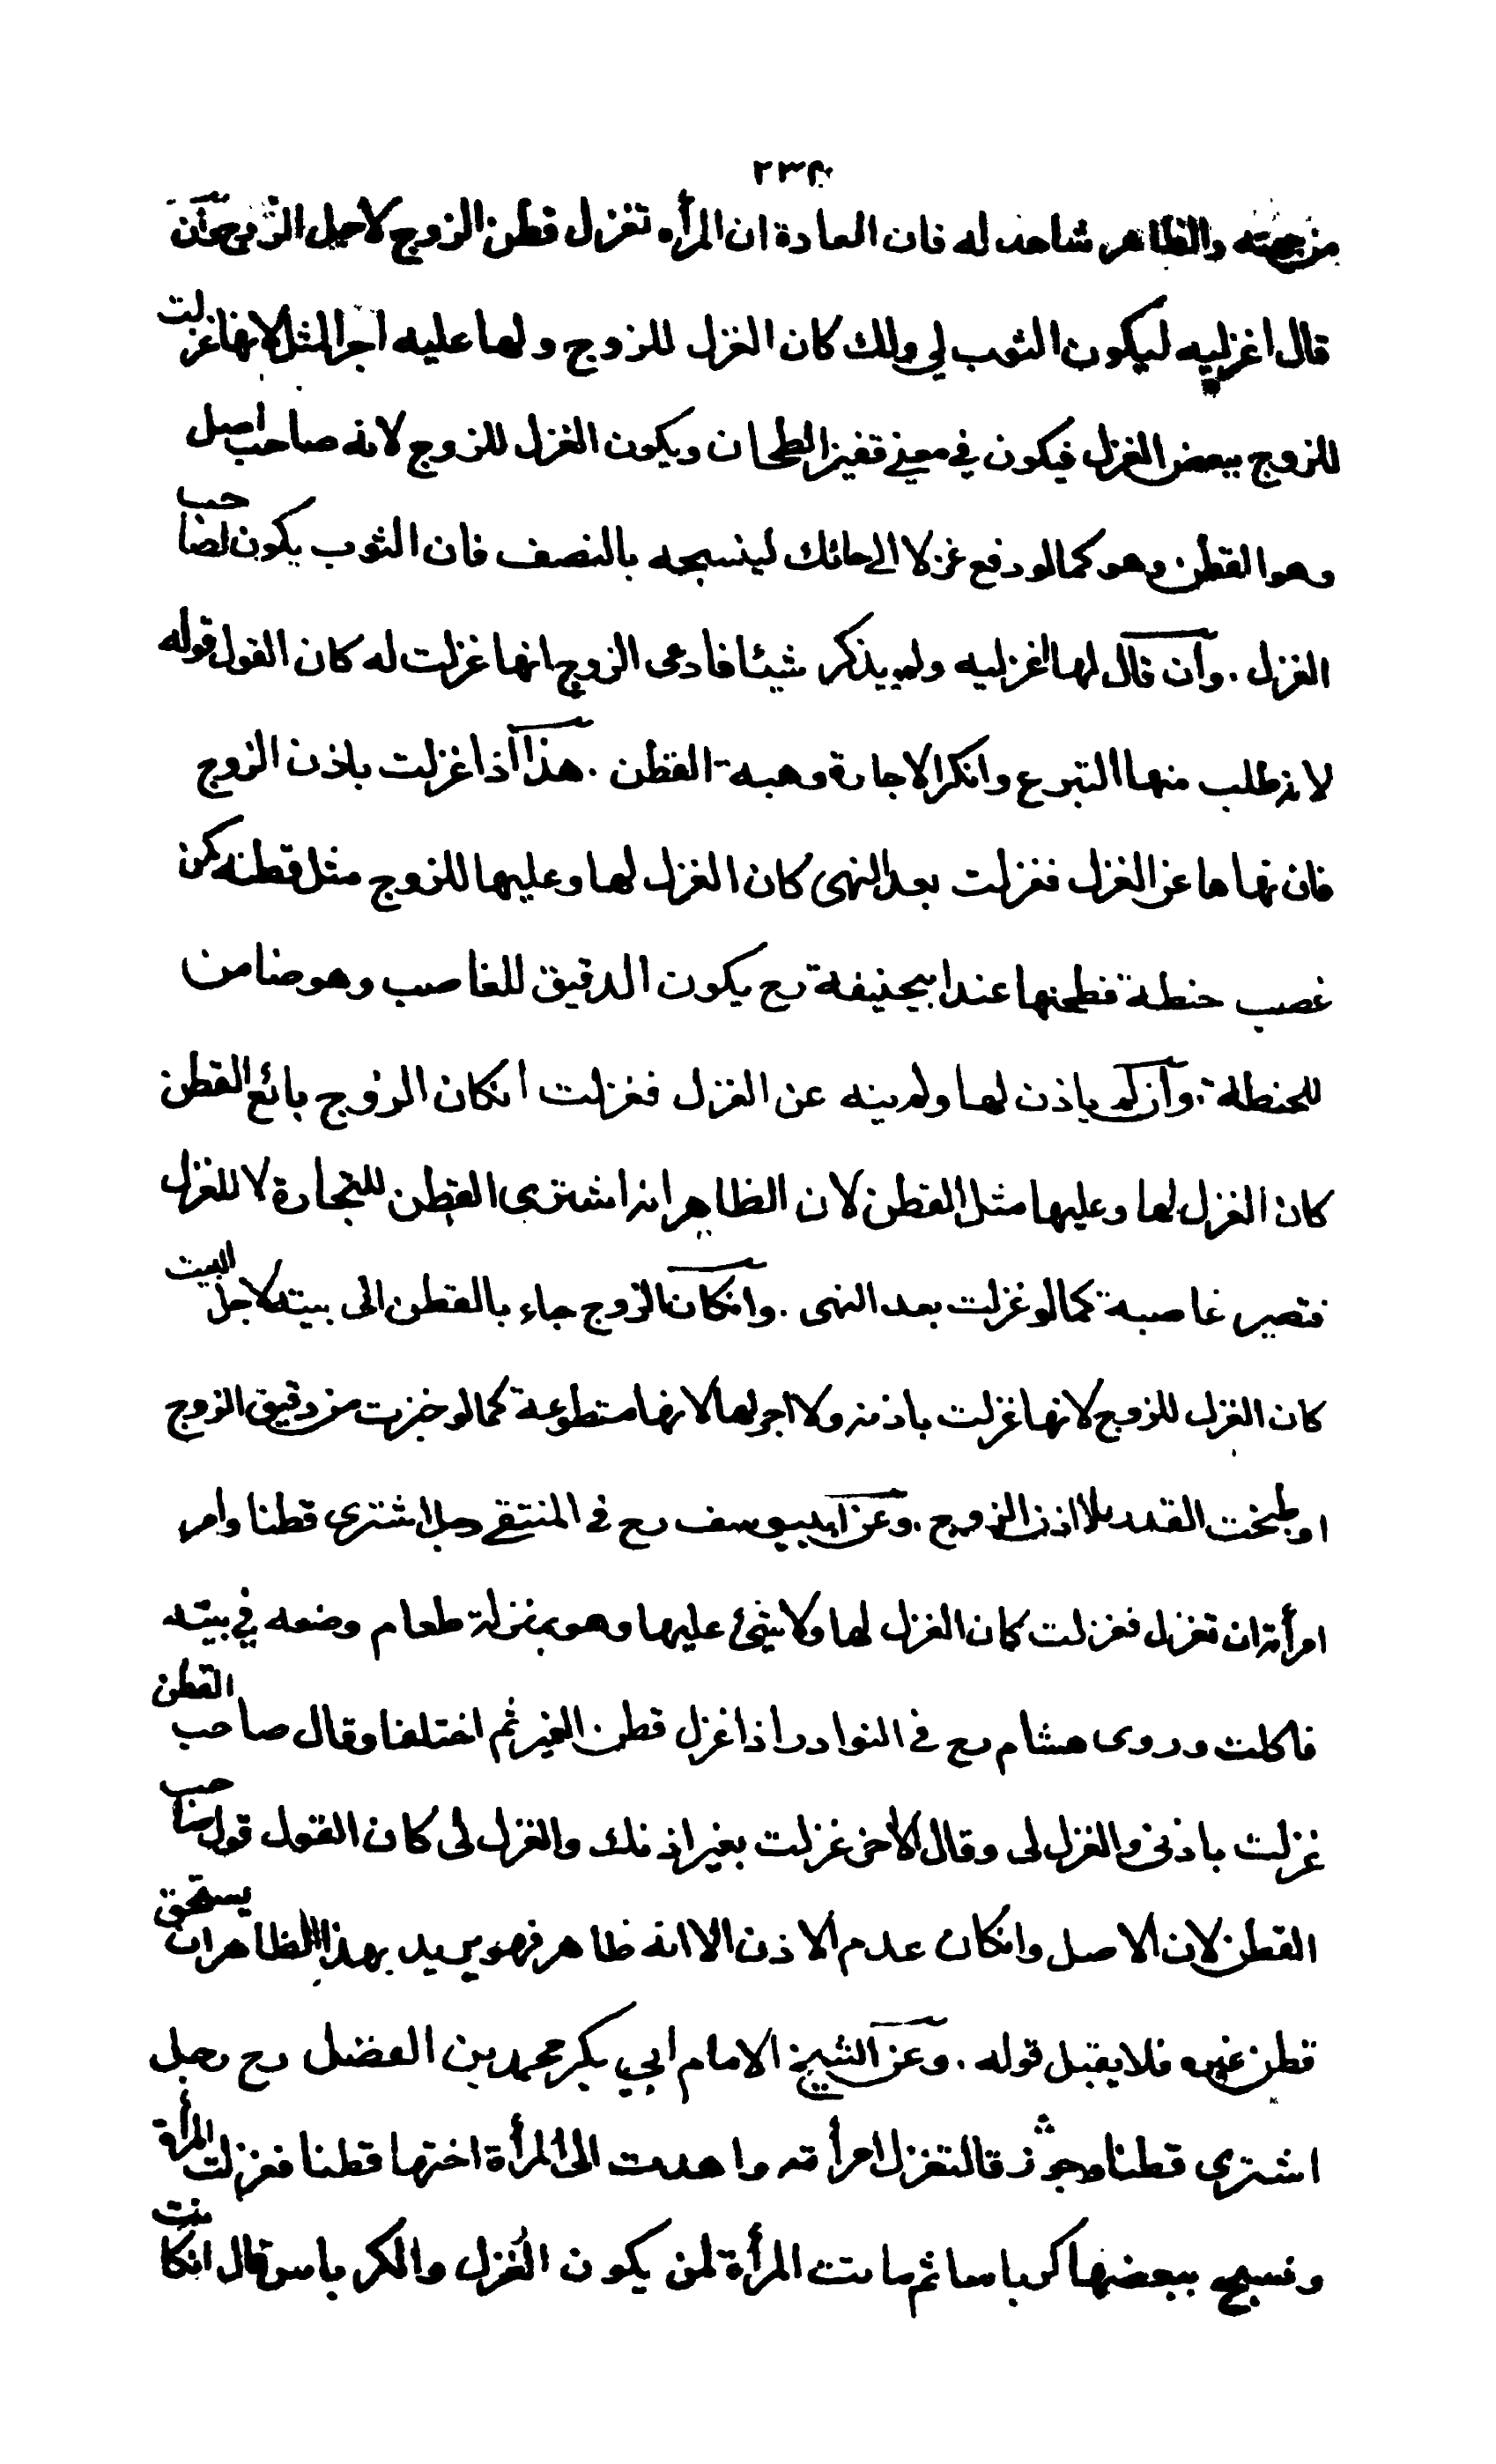 ٢٣٨
من جهته والظاهر شاهد له فان العادة ان المرأه تغزل قطن الزوج لاجل الزوج وان
قال اغزليه ليكون الثوب لي ولك كان الغزل للزوج ولها عليه اجر المثل لانها غزلت
للزوج ببعض الغزل فيكون في معنى قفيز الطحان ويكون الغزل للزوج لانه صاحب اصل
وهو القطن وهو كما لو دفع غزلا الى حائك لينسجه بالنصف فان الثوب يكون لصاحب
الغزل . وان قال لها اغزليه ولم يذكر شيئا فادعى الزوج انها غزلت له كان القول قوله
لانه طلب منها التبرع وانكر الاجارة وهبة القطن . هذا اذا غزلت باذن الزوج
فان نهاها عن الغزل فغزلت بعد النهى كان الغزل لها وعليها للزوج مثل قطنه كمن
غصب حنطة فطحنها عند ابيحنيفة رح يكون الدقيق للغاصب وهو ضامن
للحنطة . وان لم ياذن لها ولم ينه عن الغزل فغزلت انكان الزوج بائع القطن
كان الغزل لها وعليها مثل القطن لان الظاهر انه اشترى القطن للتجارة لا للغزل
فتصير غاصبة كما لو غزلت بعد النهى . وانكان الزوج جاء بالقطن الى بيته لاجل البيت
كان الغزل للزوج لانها غزلت باذنه ولا اجر لها لانها متطوعة كما لو خبزت من دقيق الزوج
او طبخت القدر بلا اذن الزوج . وعن ابيوسف رح في المنتقى رجل اشترى قطنا وامر
امرأته ان تغزل فغزلت كان الغزل لها ولا شئ عليها وهو بمنزلة طعام وضعه في بيته
فاكلت وروى هشام رح في النوادر اذا غزل قطن الغير ثم اختلفا وقال صاحب القطن
غزلت باذني والغزل لى وقال الآخر غزلت بغير اذنك والغزل لى كان القول قول صاحب
القطن لان الاصل وانكان عدم الاذن الا انه ظاهر فهو يريد بهذا الظاهر ان يستحق
قطن غيره فلا يقبل قوله . وعن الشيخ الامام ابي بكر محمد بن الفضل رح رجل
اشترى قطنا وجوز قا لتغزل امرأته واهدت الى المرأة اختها قطنا فغزلت المرأة
ونسج ببعضها كرباسا ثم ماتت المرأة لمن يكون الغزل والكرباس قال انكانت